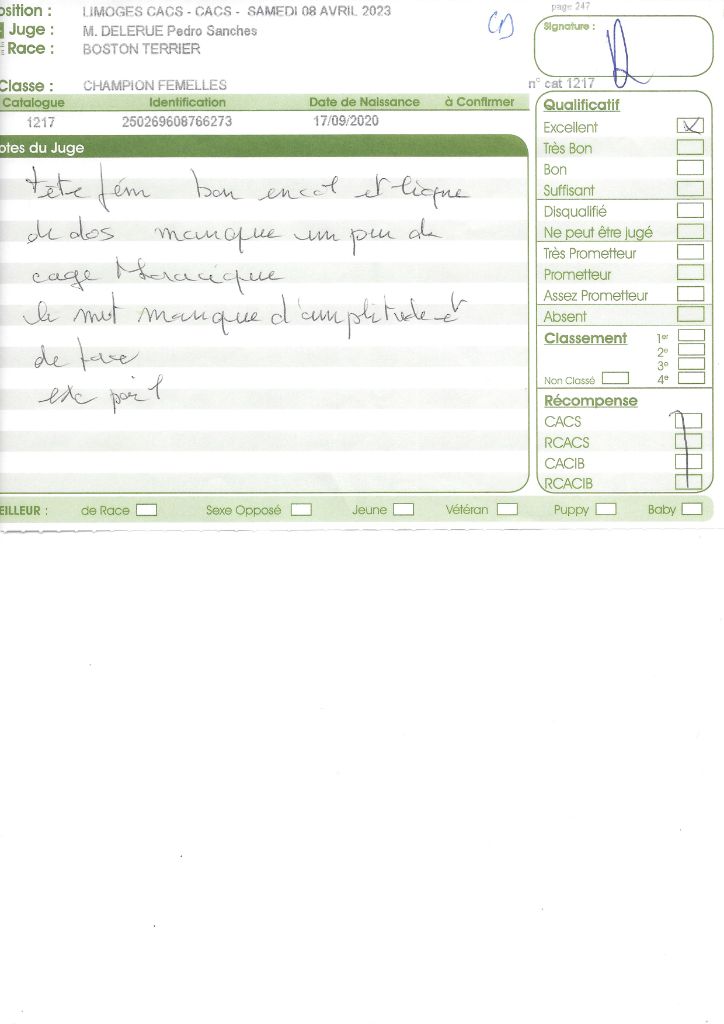 osition : LIMOGES CACS - CACS - SAMEDI 08 AVRIL 2023
page 247
Juge : M. DELERUE Pedro Sanches
Signature :
Race : BOSTON TERRIER
Classe : CHAMPION FEMELLES
n° cat 1217
Catalogue Identification Date de Naissance à Confirmer
1217 250269608766273 17/09/2020
otes du Juge
tête fém bon encol et ligne
de dos manque un peu de
cage thoracique
le mvt manque d'amplitude et
de
exc poil
Qualificatif
Excellent
Très Bon
Bon
Suffisant
Disqualifié
Ne peut être jugé
Très Prometteur
Prometteur
Assez Prometteur
Absent
Classement 1er
2e
3e
Non Classé 4e
Récompense
CACS
RCACS
CACIB
RCACIB
EILLEUR : de Race Sexe Opposé Jeune Vétéran Puppy Baby